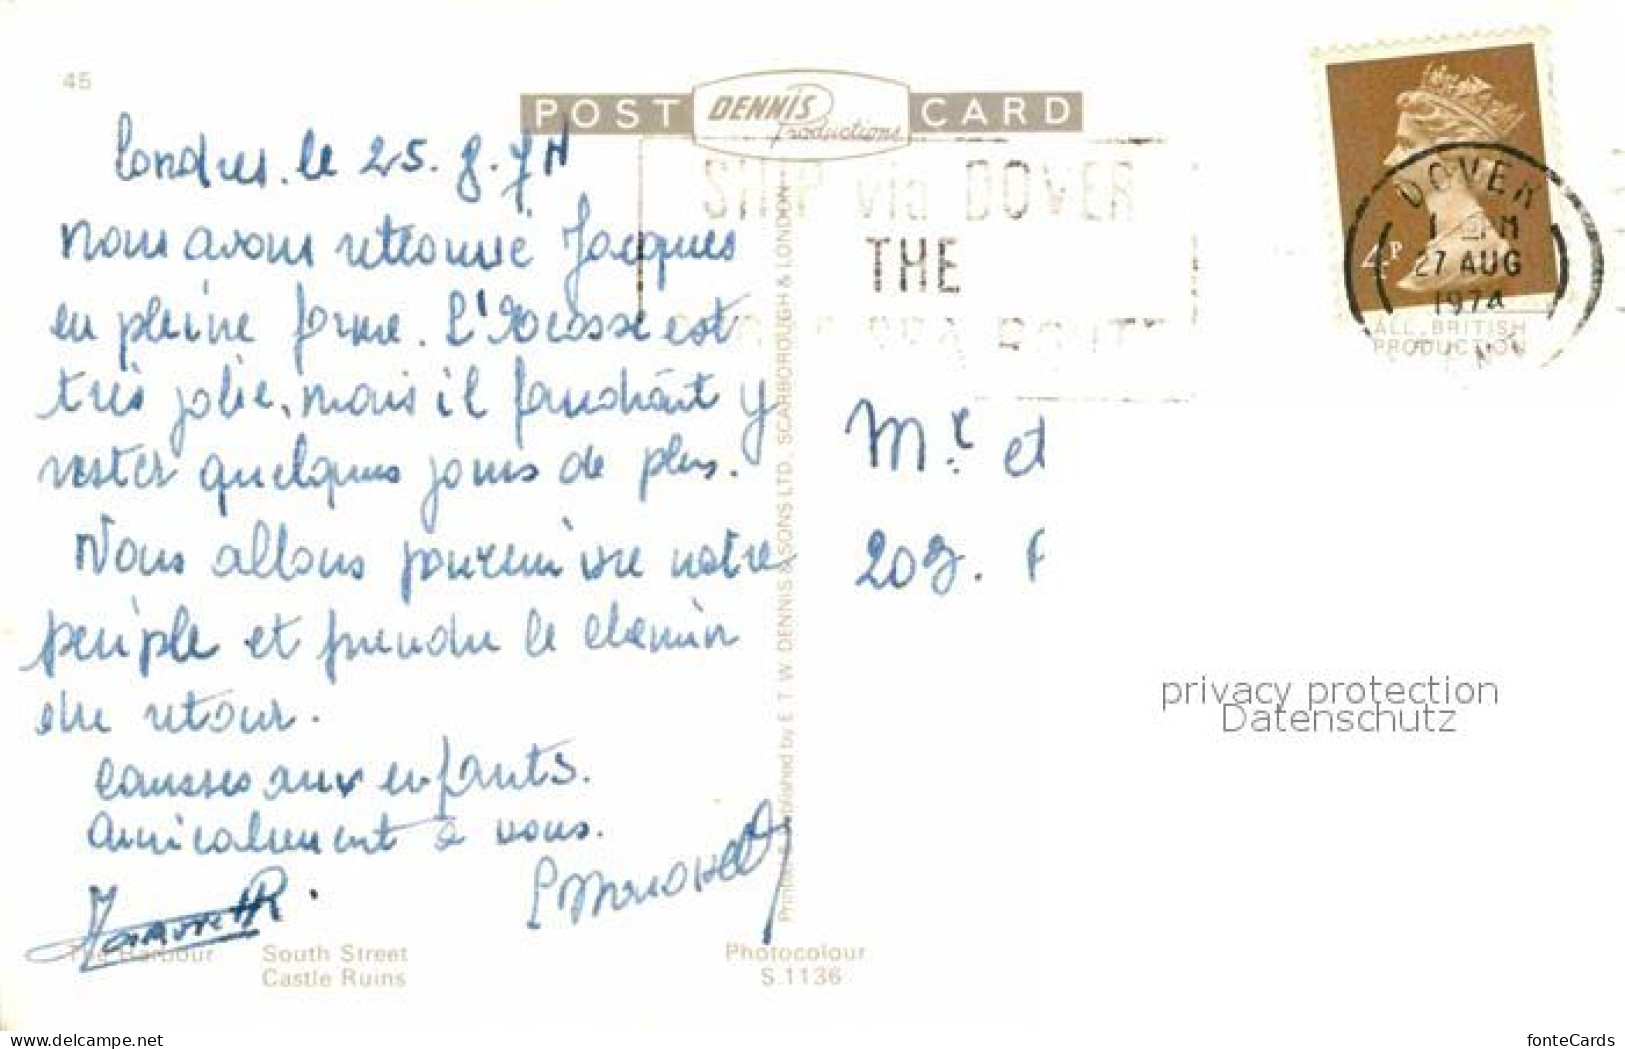 45
POST DENNIS Productions CARD
Londres. le 25. 8. 74
Nous avons retrouvé Jacques
en pleine forme. L'Ecosse est
très jolie, mais il faudrait y
rester quelques jours de plus.
Nous allons poursuivre notre
périple et prendre le chemin
du retour.
Caresses aux enfants.
Amicalement à vous.
The Harbour South Street
Castle Ruins
Photocolour
S.1136
Printed & Published by E. T. W. DENNIS & SONS LTD., SCARBOROUGH & LONDON
SHIP via DOVER
THE
4P
DOVER
27 AUG
1974
KENT
ALL BRITISH
PRODUCTION
Mr. et
209.
privacy protection
Datenschutz
www.delcampe.net
fonteCards